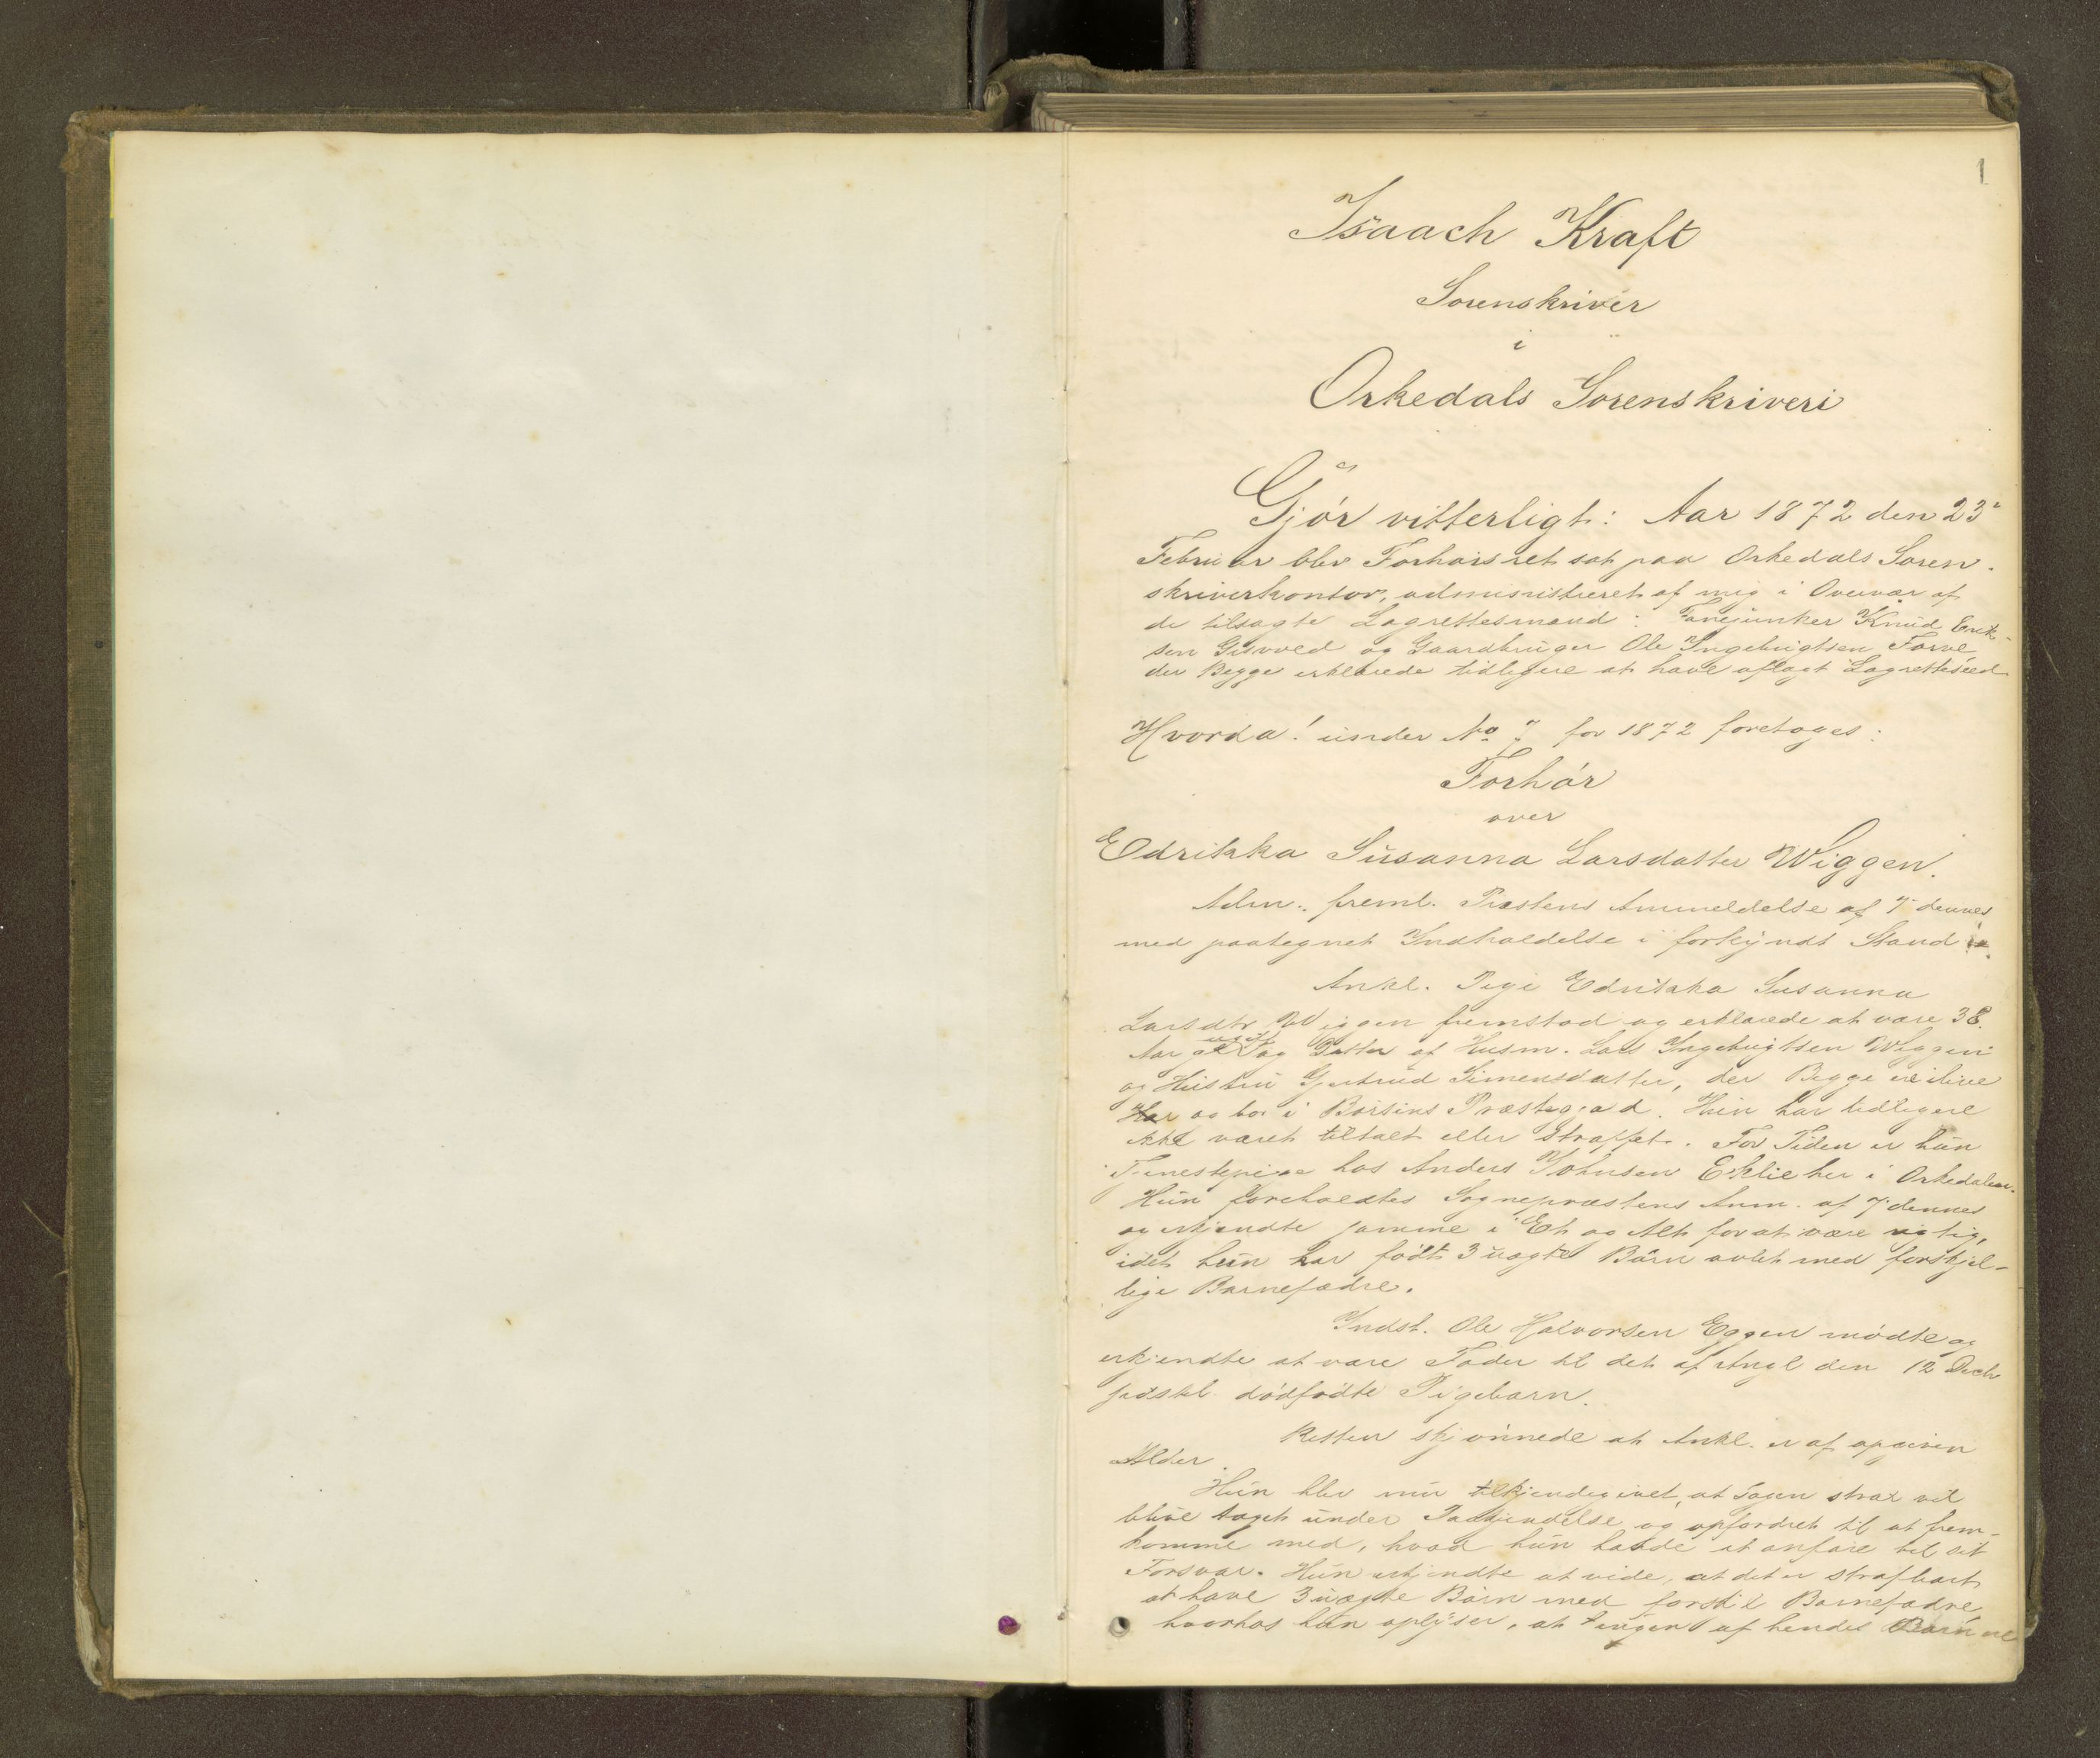 1
Isaach Kraft
Sorenskriver
i
Orkedals Sorenskriveri
Gjör vitterligt: Aar 1872 den 23
Februar blev Forhörsret sat paa Orkedals Soren-
skriverkontor, administreret af mig i Overvær af
de tilsagte Lagrettesmænd: Fanejunker Knud Erik-
sen Gisvold og Gaardbruger Ole Ingebrigtsen Forve
der Begge erklærede tidligere at have aflagt Lagretteseed
Hvorda! under No 7 for 1872 foretages:
Forhör
over
Edrikka Susanna Larsdatter Wiggen.
Adm. freml. Præstens Anmeldelse af 7 dennes
med paategnet Indkaldelse i forkyndt Stand
Ankl. Pige Edrikka Susanna
Larsdtr Wiggen fremstod og erklærede at være 38
Aar gl ugift og Datter af Husm. Lars Ingebrigtsen Wiggen
og Hustru Gjertrud Simensdatter, der Begge ere ilive
og bor i Börsens Præstegjæld. Hun har tidligere
ikke været tiltalt eller straffet. For Tiden er hun
Tjenestepige hos Anders Johnsen Eklie her i Orkedalen.
Hun foreholdtes Sognepræstens Anm. af 7 dennes
og erkjendte samme i Et og Alt for at være rigtig,
idet hun har födt 3 uægte Börn avlet med forskjel-
lige Barnefædre.
Indst. Ole Halvorsen Eggen mödte og
erkjendte at være Fader til det af Angl den 12 Decb
sidstl. dödfödte Pigebarn.
Retten skjönnede at Ankl. er af opgiven
Alder.
Hun blev nu tilkjendegivet, at Sagen strax vil
blive taget under Paakjendelse og opfordret til at frem-
komme med, hvad hun havde at anföre til sit
Forsvar. Hun erkjendte at vide, at det er strafbart
at have 3 uægte Börn med forskjl Barnefædre
hvorhos hun oplyser, at ingen af hendes Börn ere